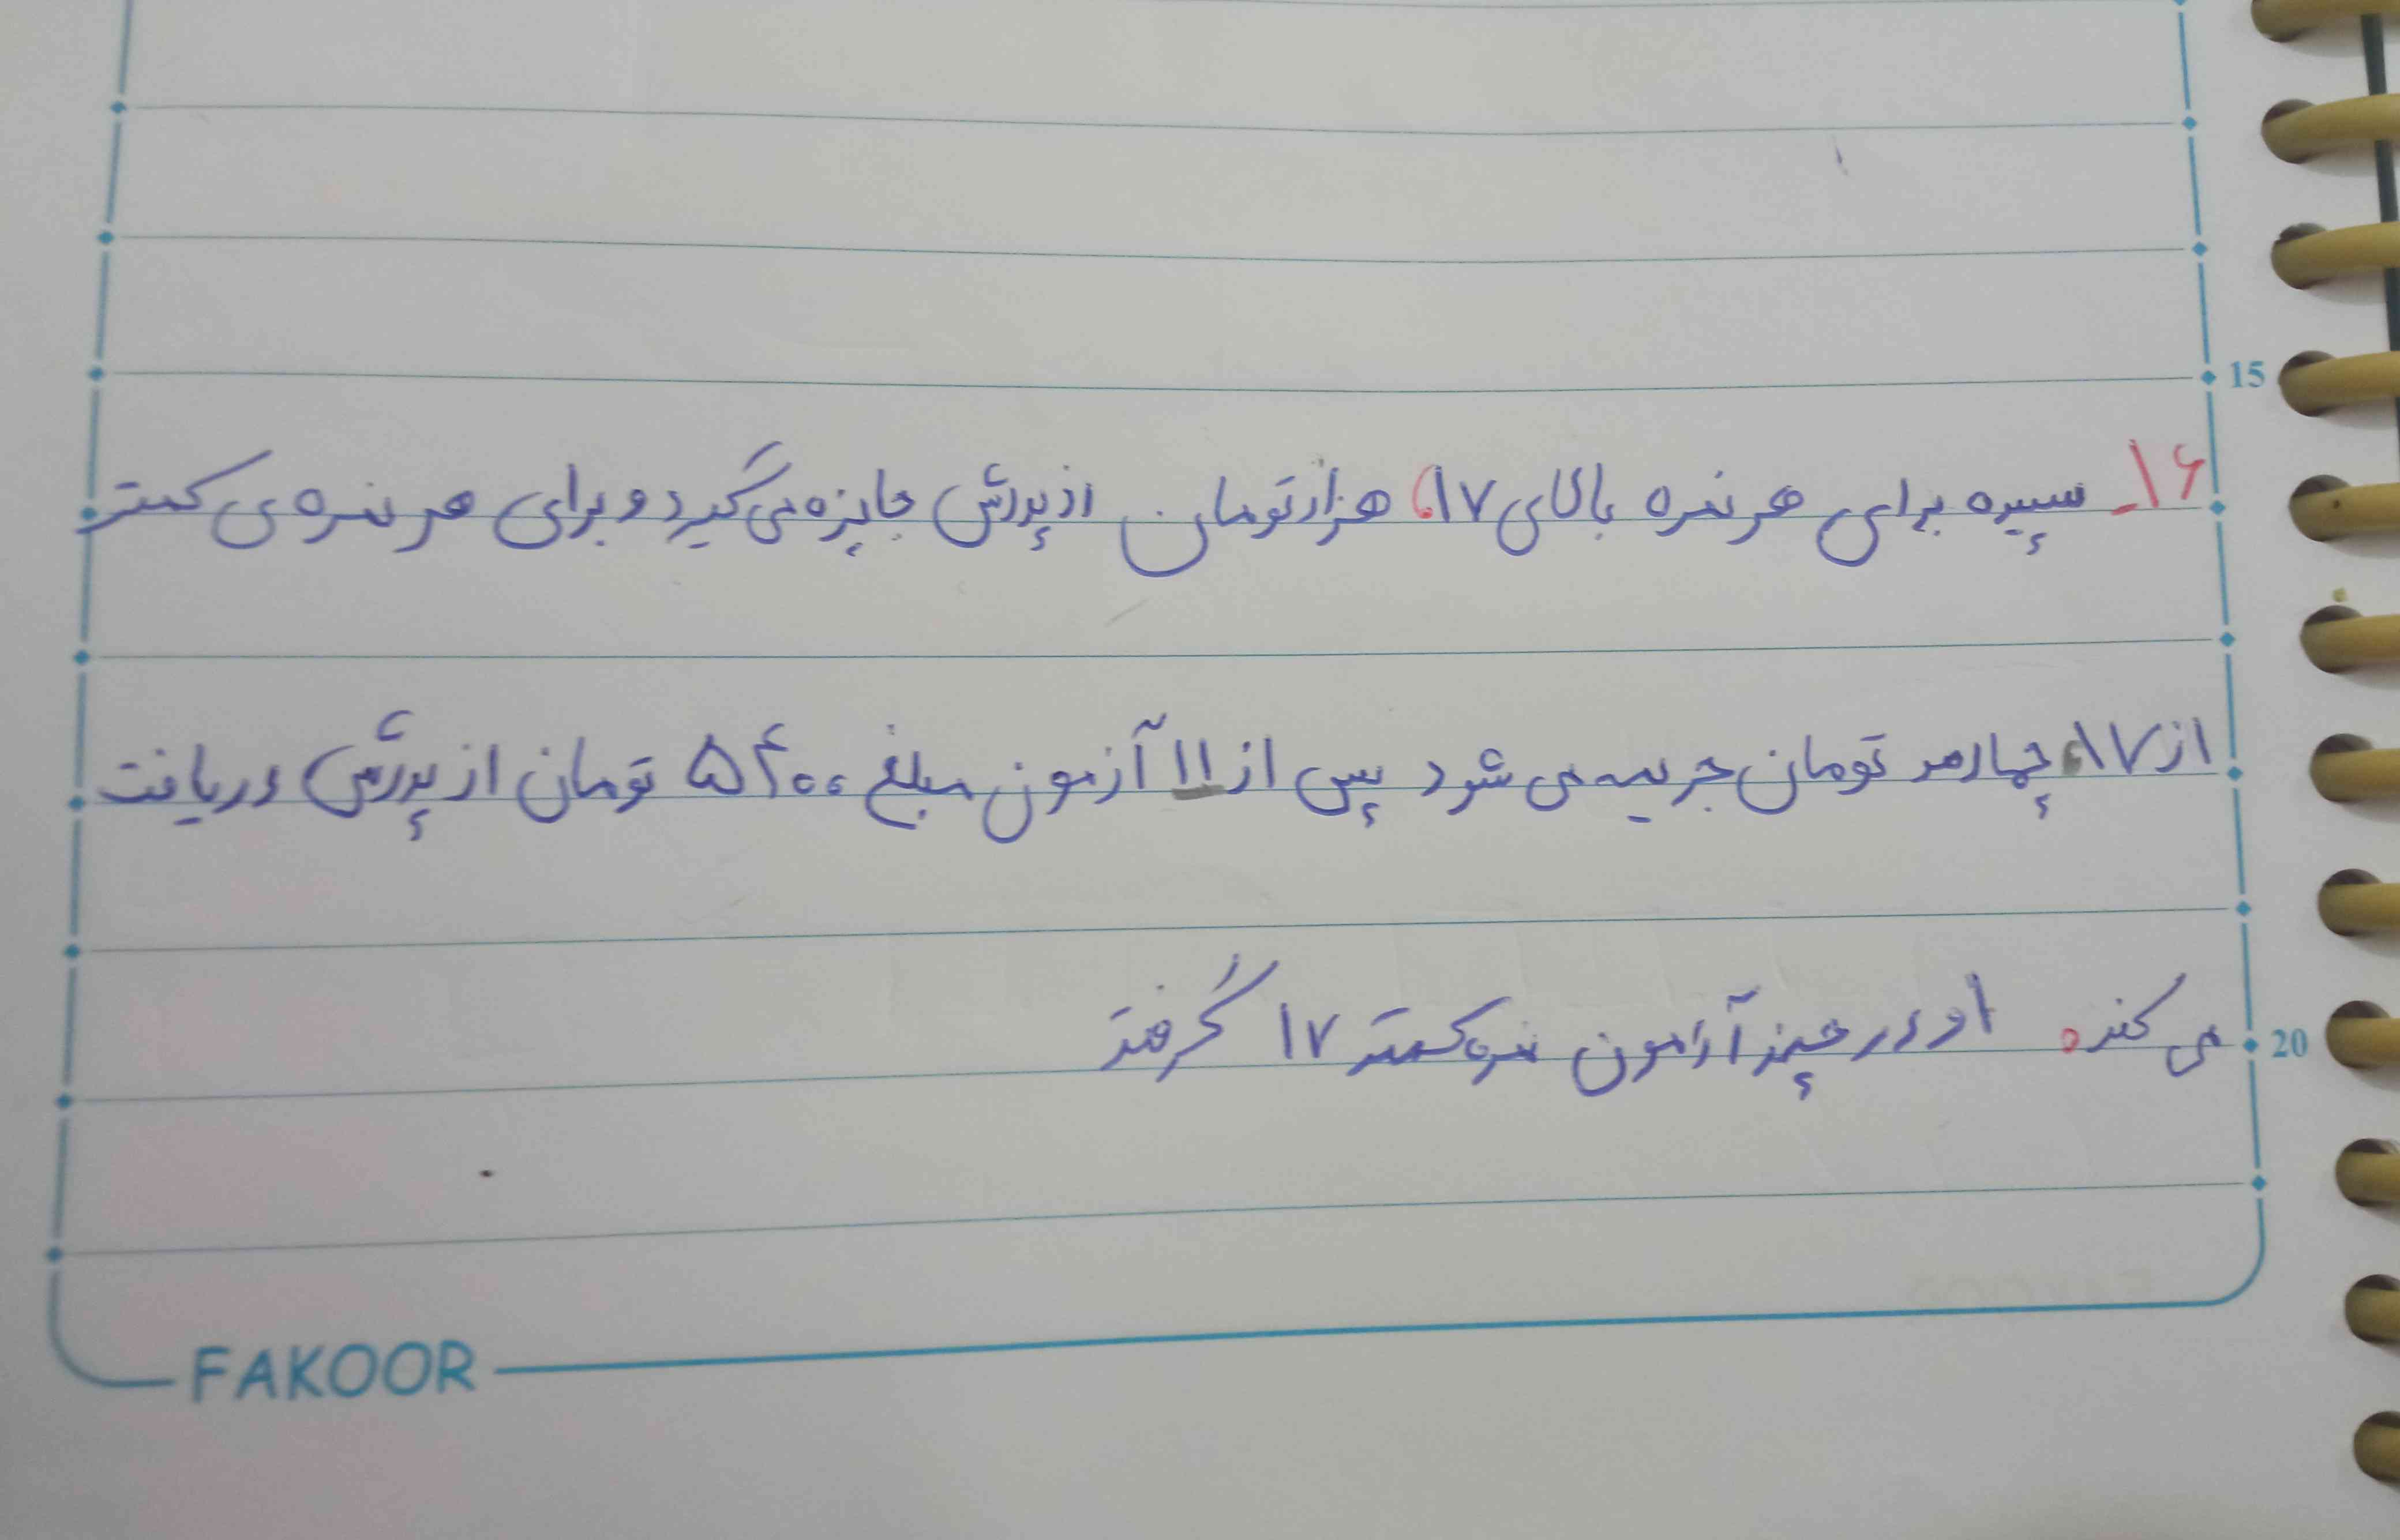 15
۱۶_ سپیده برای هر نمره بالای ۱۷، هزار تومان از پدرش جایزه می‌گیرد و برای هر نمره‌ی کمتر
از ۱۷، چهارصد تومان جریمه می‌شود پس از ۱۱ آزمون مبلغ ۵۴۰۰ تومان از پدرش دریافت
می کند. او در چند آزمون نمره کمتر ۱۷ گرفته
20
FAKOOR